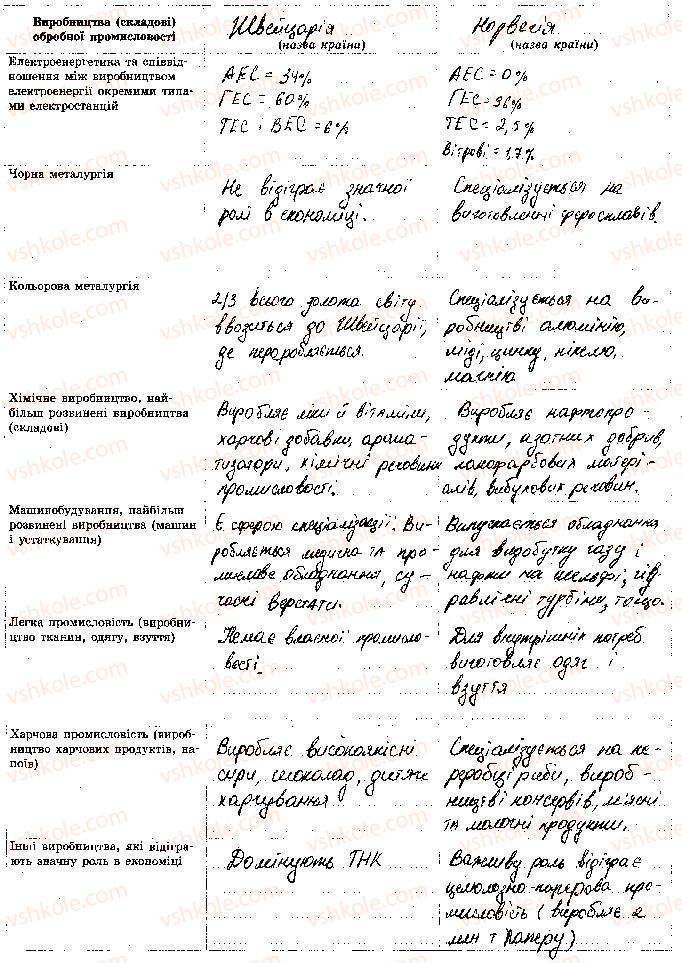 Виробництва (складові)
обробної промисловості
Швейцарія
(назва країни)
Норвегія
(назва країни)
Електроенергетика та співвід-
ношення між виробництвом
електроенергії окремими типа-
ми електростанцій
АЕС = 34%
ГЕС = 60%
ТЕС і ВЕС = 6%
АЕС = 0%
ГЕС = 96%
ТЕС = 2,5%
Вітрові = 1,7%
Чорна металургія
Не відіграє значної
ролі в економіці.
Спеціалізується на
виготовленні феросплавів.
Кольорова металургія
2/3 всього золота світу
вводиться до Швейцарії,
де переробляється.
Спеціалізується на ви-
робництві алюмінію,
міді, цинку, нікелю,
магнію
Хімічне виробництво, най-
більш розвинені виробництва
(складові)
Виробляє ліки й вітаміни,
харчові добавки, арома-
тизатори, хімічні речовини
промисловості.
Виробляє нафтопро-
дукти, азотних добрив,
лакофарбових матері-
алів, вибухових речовин.
Машинобудування, найбільш
розвинені виробництва (машин
і устаткування)
Є сферою спеціалізації. Ви-
робляється медична та про-
мислове обладнання, су-
часні верстати.
Випускається обладнання
для видобутку газу і
нафти на шельфі, гід-
равлічні турбіни, тощо.
Легка промисловість (виробни-
цтво тканин, одягу, взуття)
Немає власної промисло-
вості.
Для внутрішніх потреб
виготовляє одяг і
взуття
Харчова промисловість (вироб-
ництво харчових продуктів, на-
поїв)
Виробляє високоякісні
сири, шоколад, дитяче
харчування
Спеціалізується на пе-
реробці риби, вироб-
ництві консервів, м'ясні
та молочні продукти.
Інші виробництва, які відігра-
ють значну роль в економіці
Домінують ТНК
Важливу роль відіграє
целюлозно-паперова про-
мисловість (виробляє 2
млн т паперу)
vshkole.com